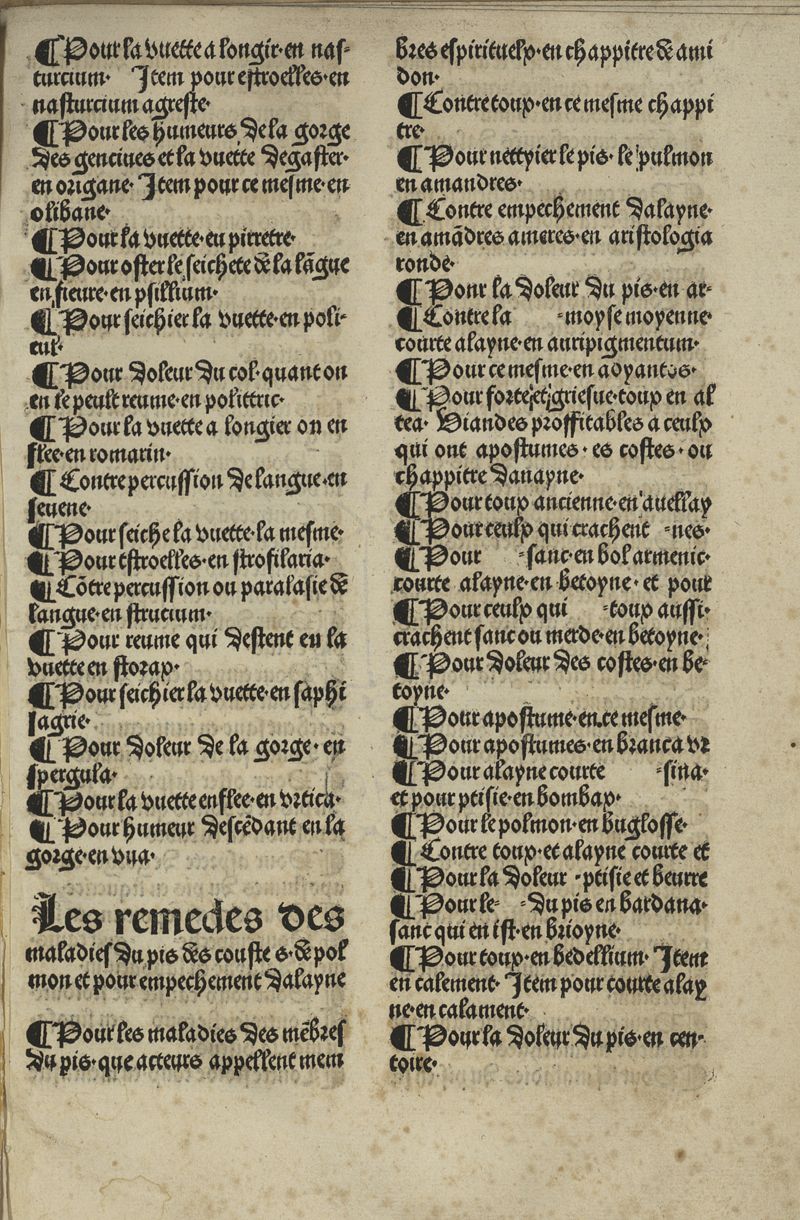 ¶ Pour la vuette a longir·en nas-
turcium· Item pour estroelles·en
nasturcium agreste·
¶ Pour les humeurs de la gorge
des genciues et la vuette degaster·
en origane· Item pour ce mesme·en
olibane·
¶ Pour la vuette·en pirretre·
¶ Pour oster le seichete de la lãgue
en fieure·en psillium·
¶ Pour seichier la vuette·en poli-
cul·
¶ Pour doleur du col·quant on
en le peult reume·en polittric·
¶ Pour la vuette a longier on en
flee·en romarin·
¶ Contre percussion de langue·en
seuene·
¶ Pour seiche la vuette·la mesme·
¶ Pour estroelles·en strofilaria·
¶ Cõtre percussion ou paralasie de
langue·en strucium·
¶ Pour reume qui destent en la
vuette en storax·
¶ Pour seichier la vuette·en saphi
sagrie·
¶ Pour doleur de la gorge·en
spergula·
¶ Pour la vuette enflee·en vrtica·
¶ Pour humeur descẽdant en la
gorge·en vua·
Les remedes des
maladies du pis des couste s·de pol
mon et pour empechement dalayne
¶ Pour les maladies des mẽbres
du pis·que acteurs appellent mem
bres espirituelx·en chappitre de ami
don·
¶ Contre toux·en ce mesme chappi
tre·
¶ Pour nettyier le pis·le pulmon
en amandres·
¶ Contre empechement dalayne·
en amãdres ameres·en aristologia
ronde·
¶ Pour la doleur du pis·en ar-
¶ Contre la -moyse moyenne·
courte alayne·en auripigmentum·
¶ Pour ce mesme·en adyantos·
¶ Pour forte et griesue·toux en al
tea· Viandes proffitables a ceulx
qui ont apostumes·es costes·ou
chappitre danayne·
¶ Pour toux ancienne·en auellay
¶ Pour ceulx qui crachent -nes·
¶ Pour -sanc·en bol armenic·
courte alayne·en betoyne·et pour
¶ Pour ceulx qui -toux aussi·
crachent sanc ou merde·en betoyne·
¶ Pour doleur des costes·en be-
toyne·
¶ Pour apostume·en ce mesme·
¶ Pour apostumes·en branca vr
¶ Pour alayne courte -sina·
et pour ptisie·en bombax·
¶ Pour le polmon·en buglosse·
¶ Contre toux·et alayne courte et
¶ Pour la doleur -ptisie et beurre
¶ Pour le- -du pis en bardana·
sanc qui en ist·en brioyne·
¶ Pour toux·en bedellium· Item
en calement· Item pour courte alay
ne·en calament·
¶ Pour la doleur du pis·en cen-
toire·